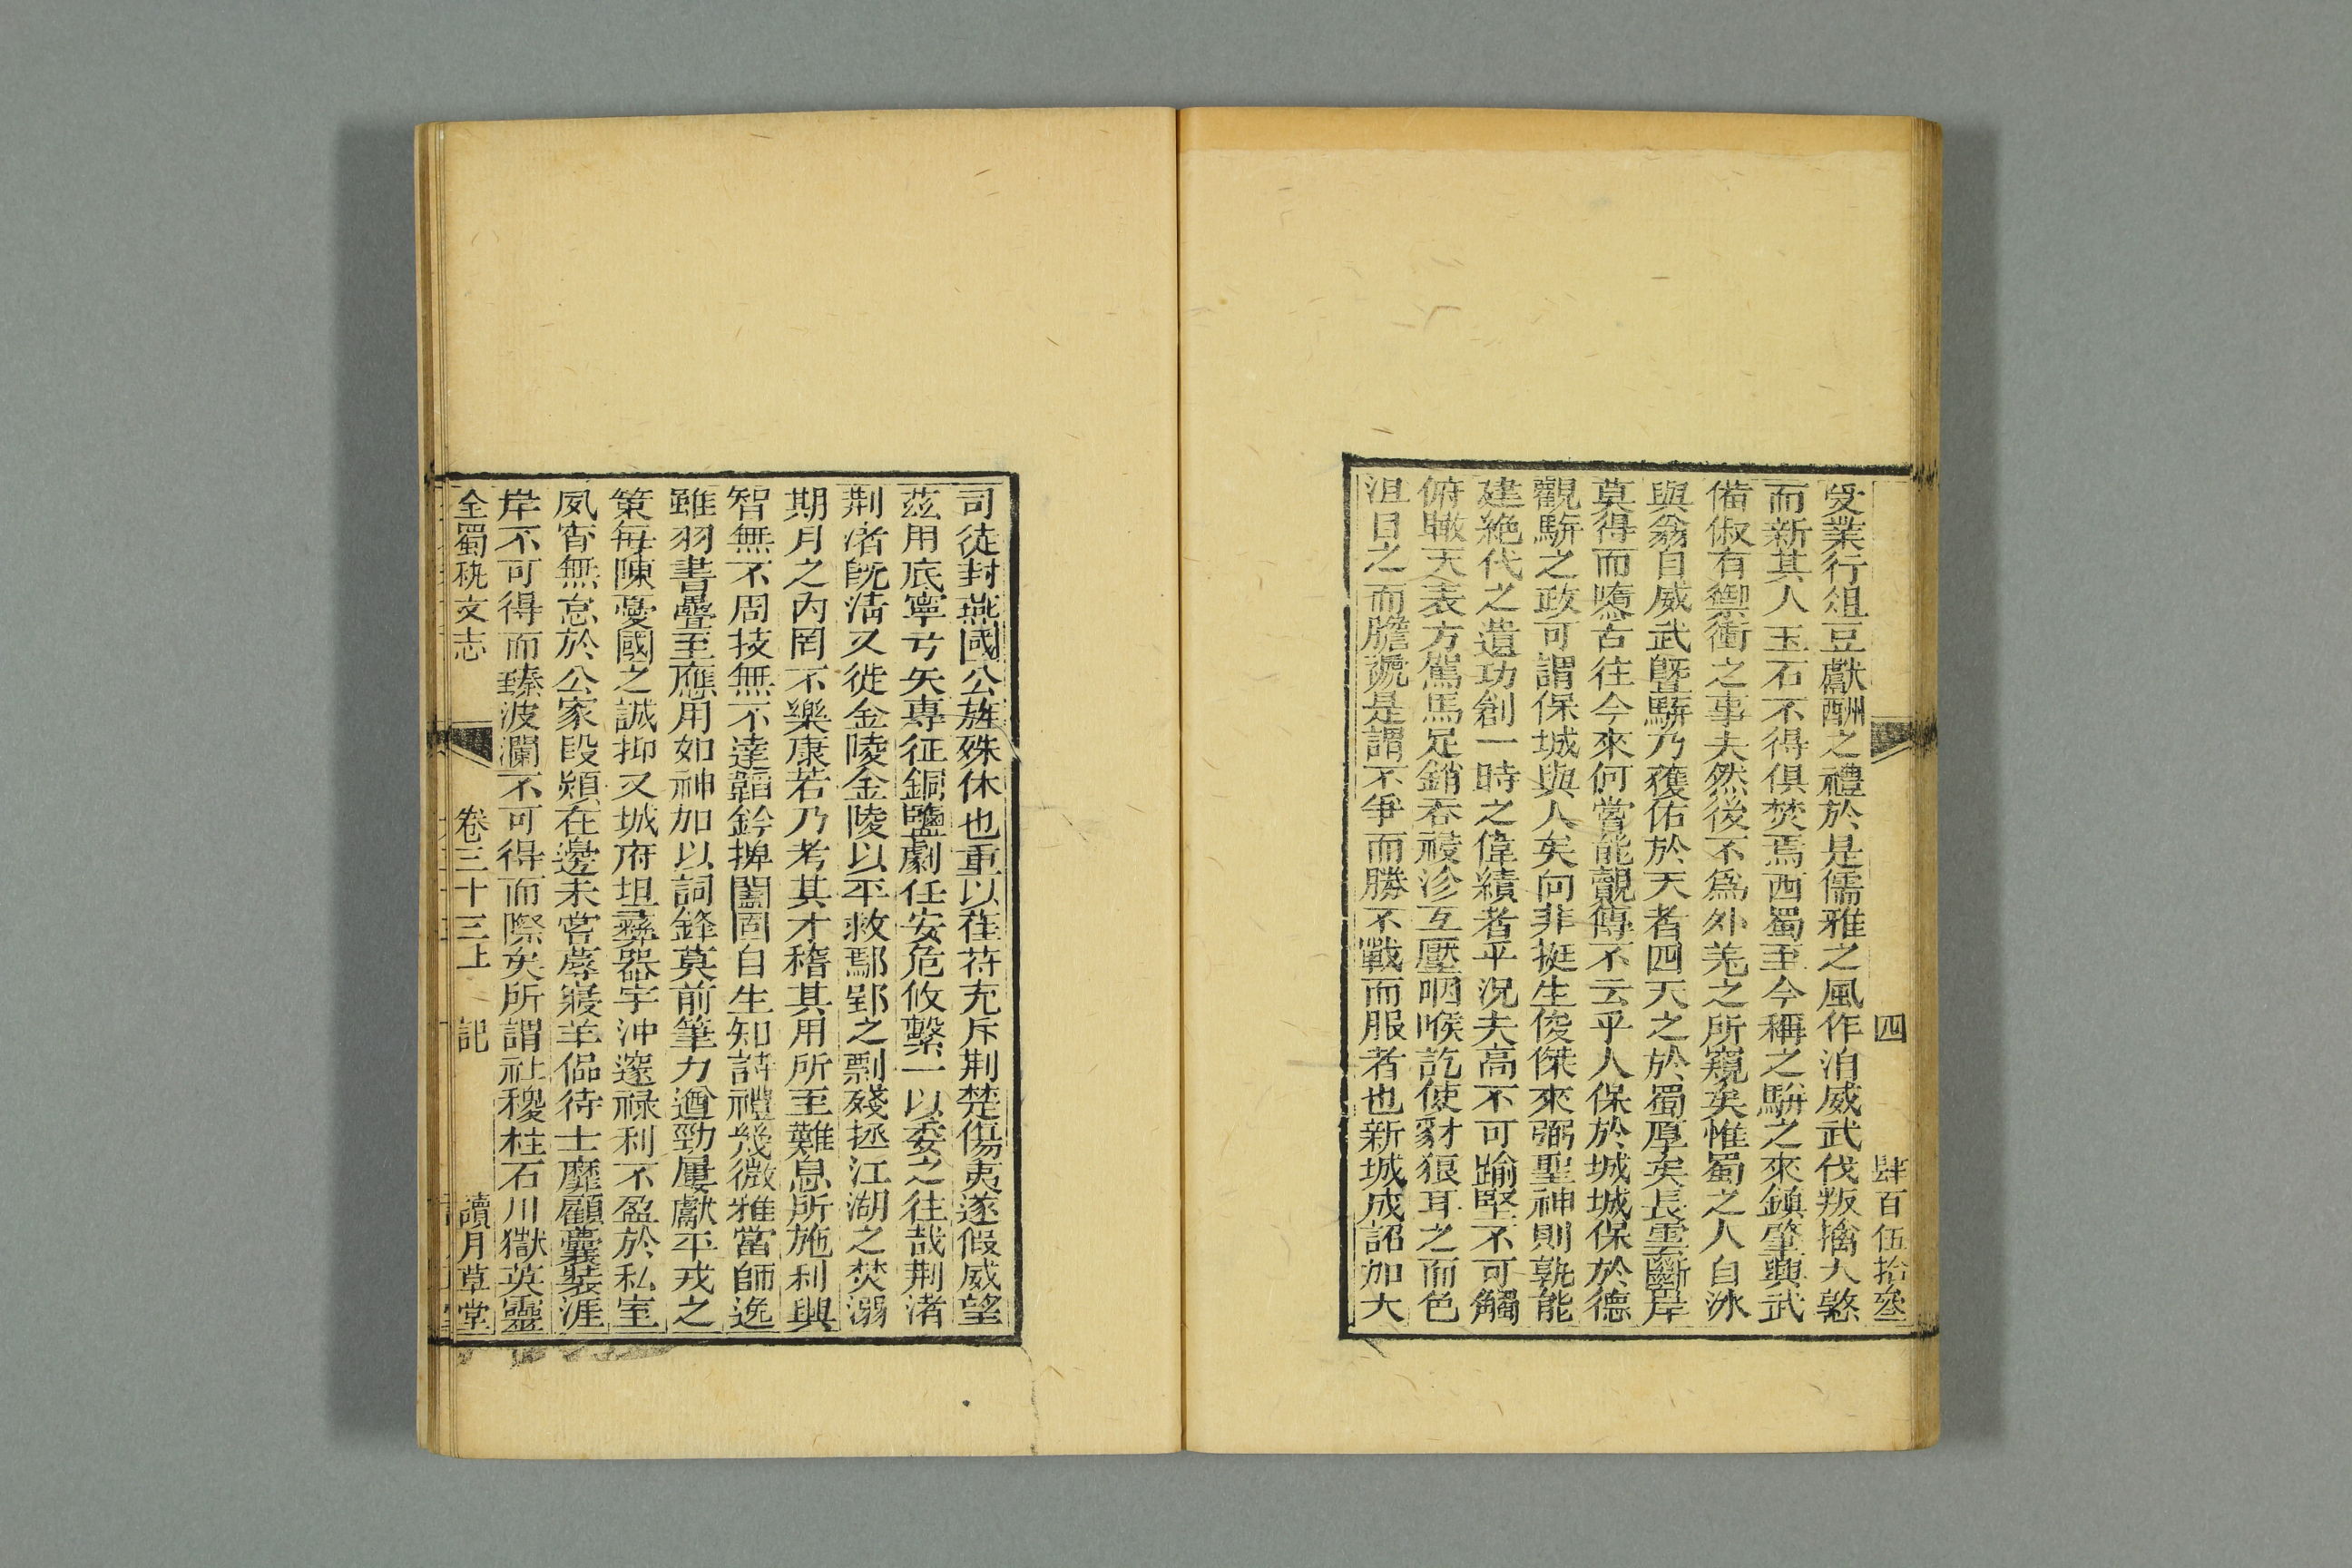 四 肆百伍拾叄
受業行俎豆獻酬之禮於是儒雅之風作洎威武伐叛擒大憝
而新其人玉石不得俱焚焉西蜀至今稱之駢之來鎮肇興武
備俶有禦衝之事夫然後不爲外羌之所窺矣惟蜀之人自冰
與翁自威武曁駢乃獲佑於天者四天之於蜀厚矣長雲斷岸
莫得而隳古往今來何嘗能覿傳不云乎人保於城城保於德
觀駢之政可謂保城與人矣向非挺生俊傑來弼聖神則孰能
建絶代之遺功創一時之偉績者乎況夫高不可踰堅不可觸
俯瞰天表方駕馬足銷吞祲沴互壓咽喉訖使豺狼耳之而色
沮目之而膽褫是謂不爭而勝不戰而服者也新城成詔加大
司徒封燕國公旌殊休也重以萑苻充斥荆楚傷夷遂假威望
茲用底寧弓矢專征銅鹽劇任安危攸繫一以委之往哉荆渚
荆渚旣淸又徙金陵金陵以平救鄢郢之剽殘拯江湖之焚溺
期月之內罔不樂康若乃考其才稽其用所至難息所施利興
智無不周技無不達韜鈐捭闔固自生知詩禮幾微雅當師逸
雖羽書疊至應用如神加以詞鋒莫前筆力遒勁屢獻平戎之
策每陳憂國之誠抑又城府坦彝器宇沖邃禄利不盈於私室
夙宵無怠於公家段熲在邊未嘗蓐寢羊偘待士靡顧囊裝涯
岸不可得而臻波瀾不可得而際矣所謂社稷柱石川嶽英靈
全蜀秇文志 卷三十三上 記 讀月草堂